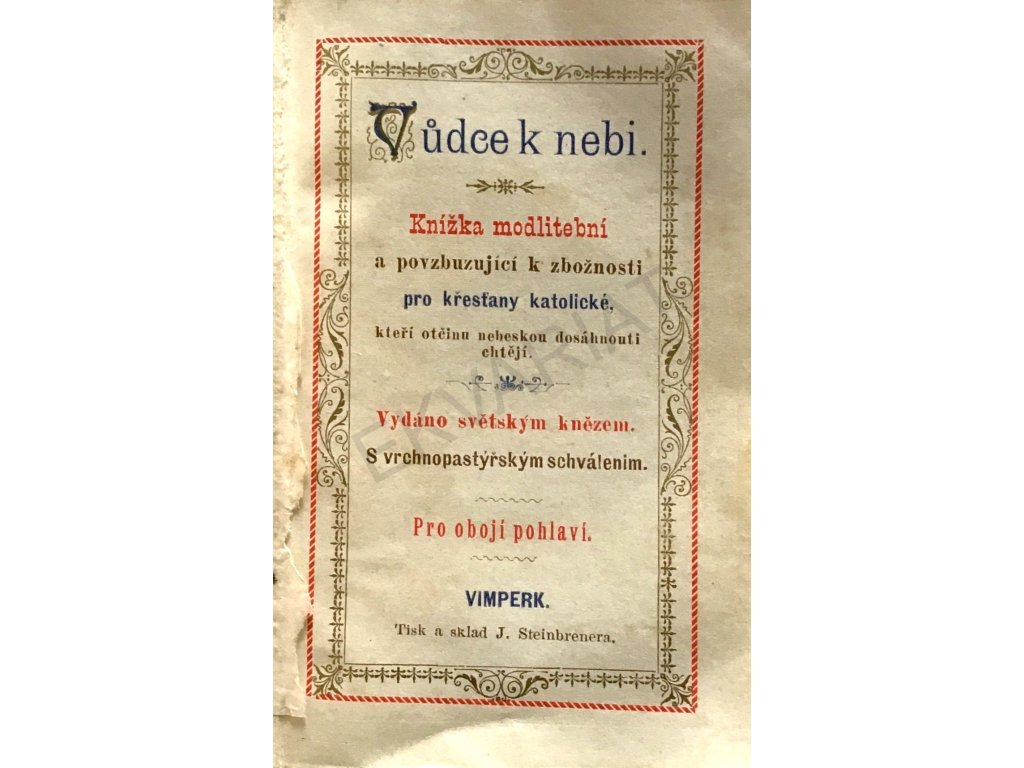 Vůdce k nebi.
Knížka modlitební
a povzbuzující k zbožnosti
pro křesťany katolické,
kteří otčinu nebeskou dosáhnouti
chtějí.
Vydáno světským knězem.
S vrchnopastýřským schválením.
Pro obojí pohlaví.
VIMPERK.
Tisk a sklad J. Steinbrenera.
EKVARIAT